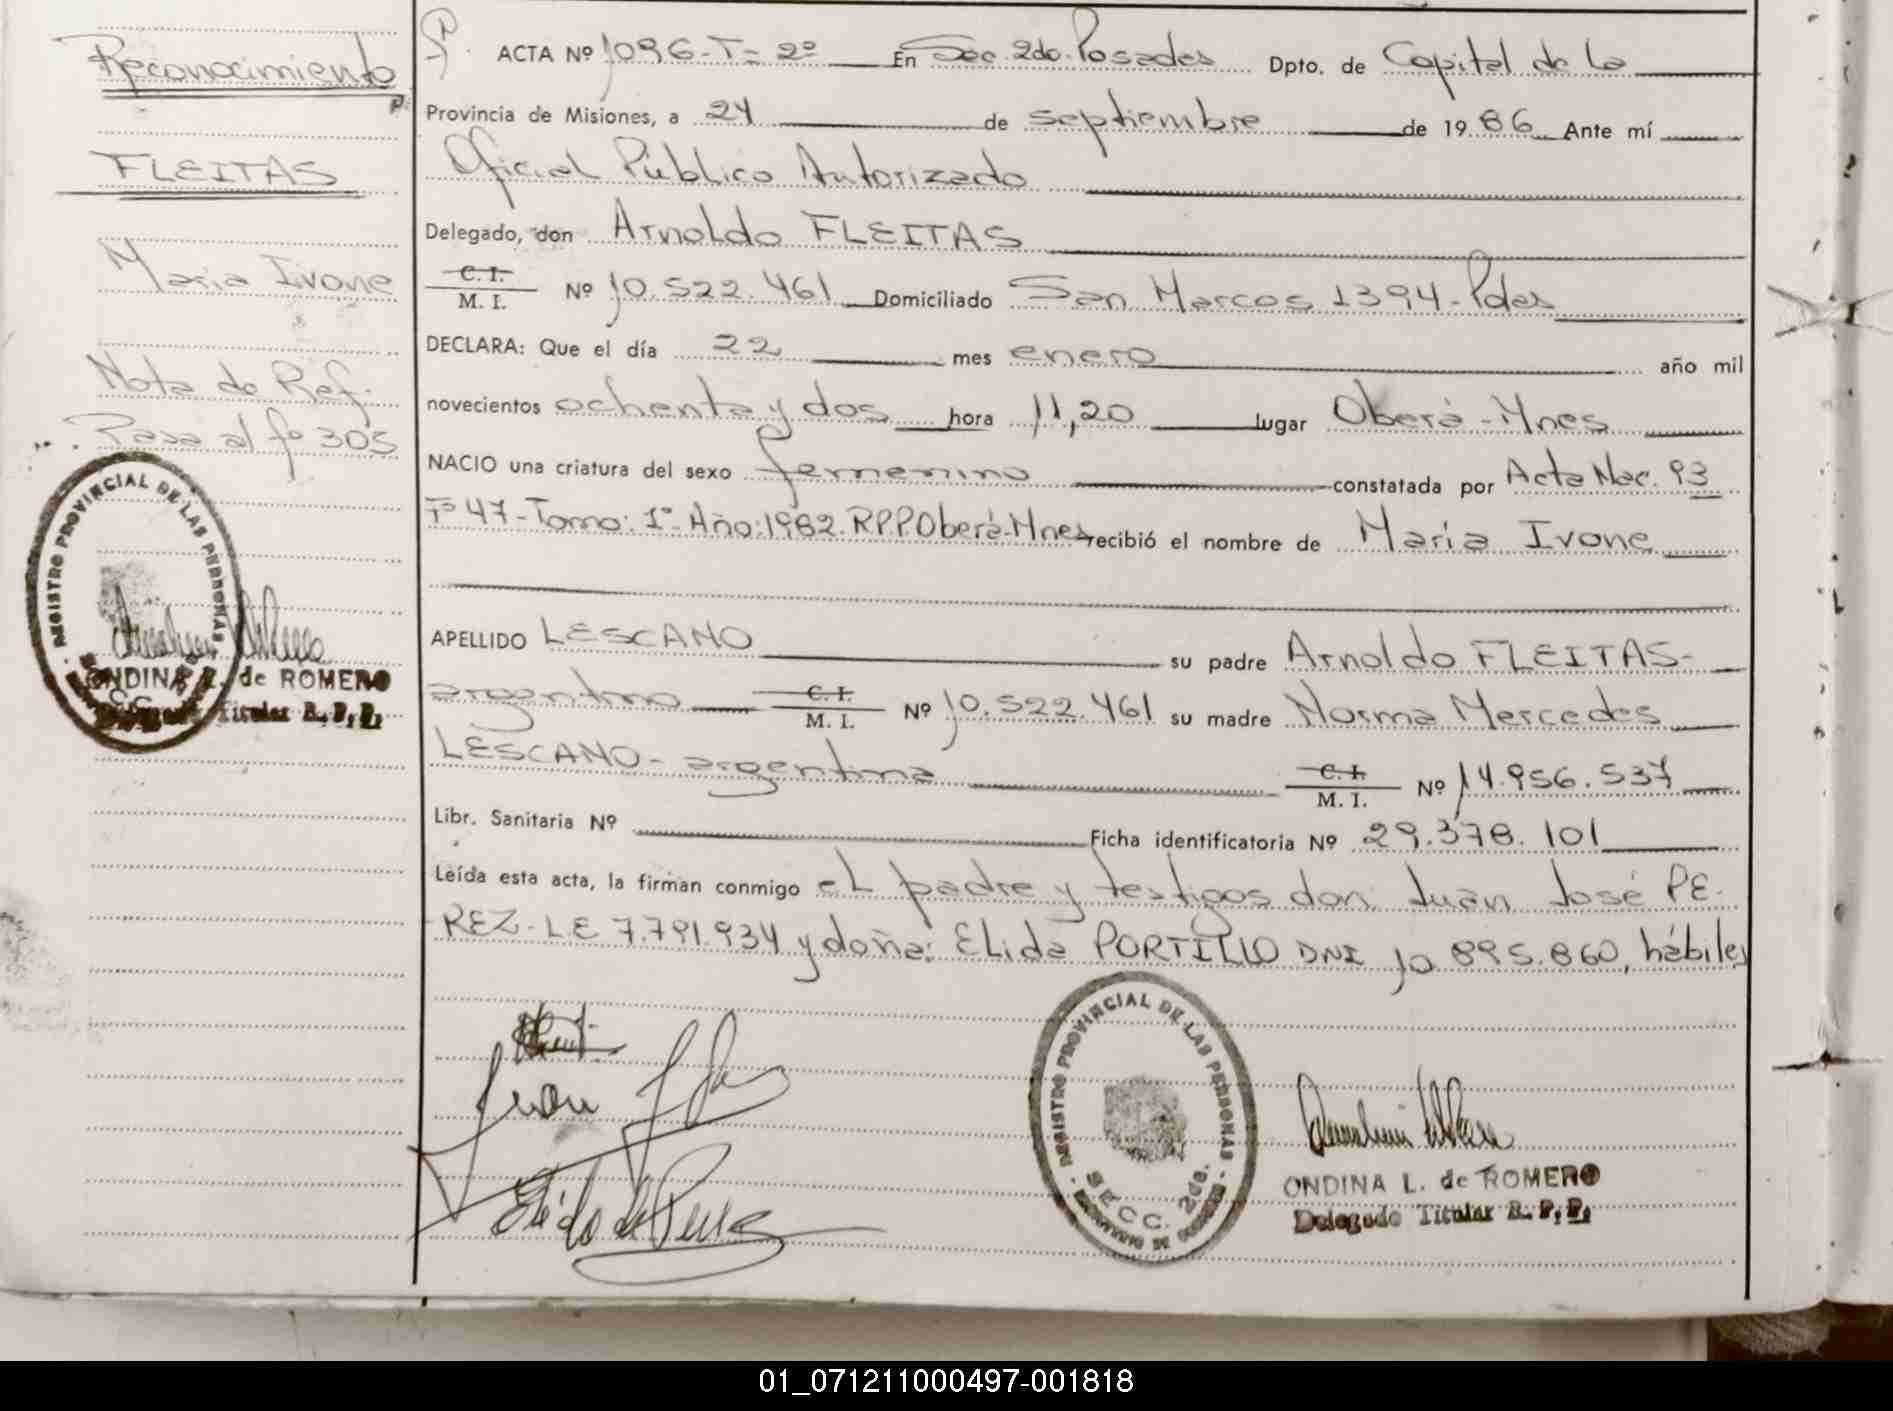 Reconocimiento
FLEITAS
Maria Ivone
Nota de Ref.
Pasa al fº 305
REGISTRO PROVINCIAL DE LAS PERSONAS
ONDINA L. de ROMERO
Delegado Titular R. P. P.
ACTA Nº 1096-T= 2º En Sec. 2da. Posadas Dpto. de Capital de la
Provincia de Misiones, a 24 de septiembre de 1986 Ante mí
Oficial Público Autorizado
Delegado, don Arnoldo FLEITAS
C. I.
M. I. Nº 10.522.461 Domiciliado San Marcos 1394-Pdas
DECLARA: Que el día 22 mes enero año mil
novecientos ochenta y dos hora 11,20 lugar Oberá-Mnes
NACIO una criatura del sexo femenino constatada por Acta Nac. 93
Fº 47-Tomo: 1º-Año: 1982. R.P.P Oberá-Mnes recibió el nombre de María Ivone
APELLIDO LESCANO su padre Arnoldo FLEITAS-
argentino C. I.
M. I. Nº 10.522.461 su madre Norma Mercedes
LESCANO-argentina C. I.
M. I. Nº 14.956.537
Libr. Sanitaria Nº Ficha identificatoria Nº 29.378.101
Leída esta acta, la firman conmigo el padre y testigos don: Juan José PE-
REZ-LE 7.791.934 y doña: ELida PORTILLO DNI 10.895.860, hábiles
Juan
Elida de Perez
REGISTRO PROVINCIAL DE LAS PERSONAS
SECC. 2da.
ONDINA L. de ROMERO
Delegado Titular R. P. P.
01_071211000497-001818